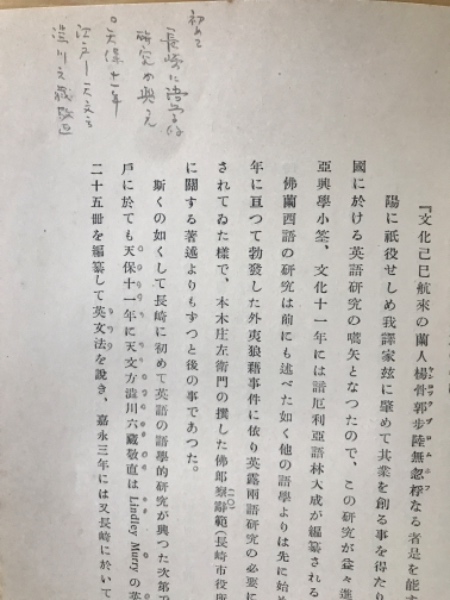 初めて
長崎に語学的
研究が興え
○天保十一年
江戸ー天文方
澁川六蔵敬直
『文化己巳航來の蘭人楊骨郭歩陸無忽桴なる者是を能す
ヤンコツクブロムホフ
陽に祇役せしめ我譯家玆に肇めて其業を創る事を得たり
國に於ける英語研究の嚆矢となつたので、この研究が益々進
亞興學小筌、文化十一年には諳厄利亞語林大成が編纂される
佛蘭西語の研究は前にも述べた如く他の語學よりは先に始め
年に亘つて勃發した外夷狼藉事件に依り英露兩語研究の必要に
されてゐた樣で、本木庄左衛門の撰した佛郎察辭範(長崎市役所
(二〇)
に關する著述よりもずつと後の事であつた。
斯くの如くして長崎に初めて英語の語學的研究が興つた次第で
戸に於ても天保十一年に天文方澁川六藏敬直は Lindley Murry の英
二十五冊を編纂して英文法を說き、嘉永三年には又長崎に於いて